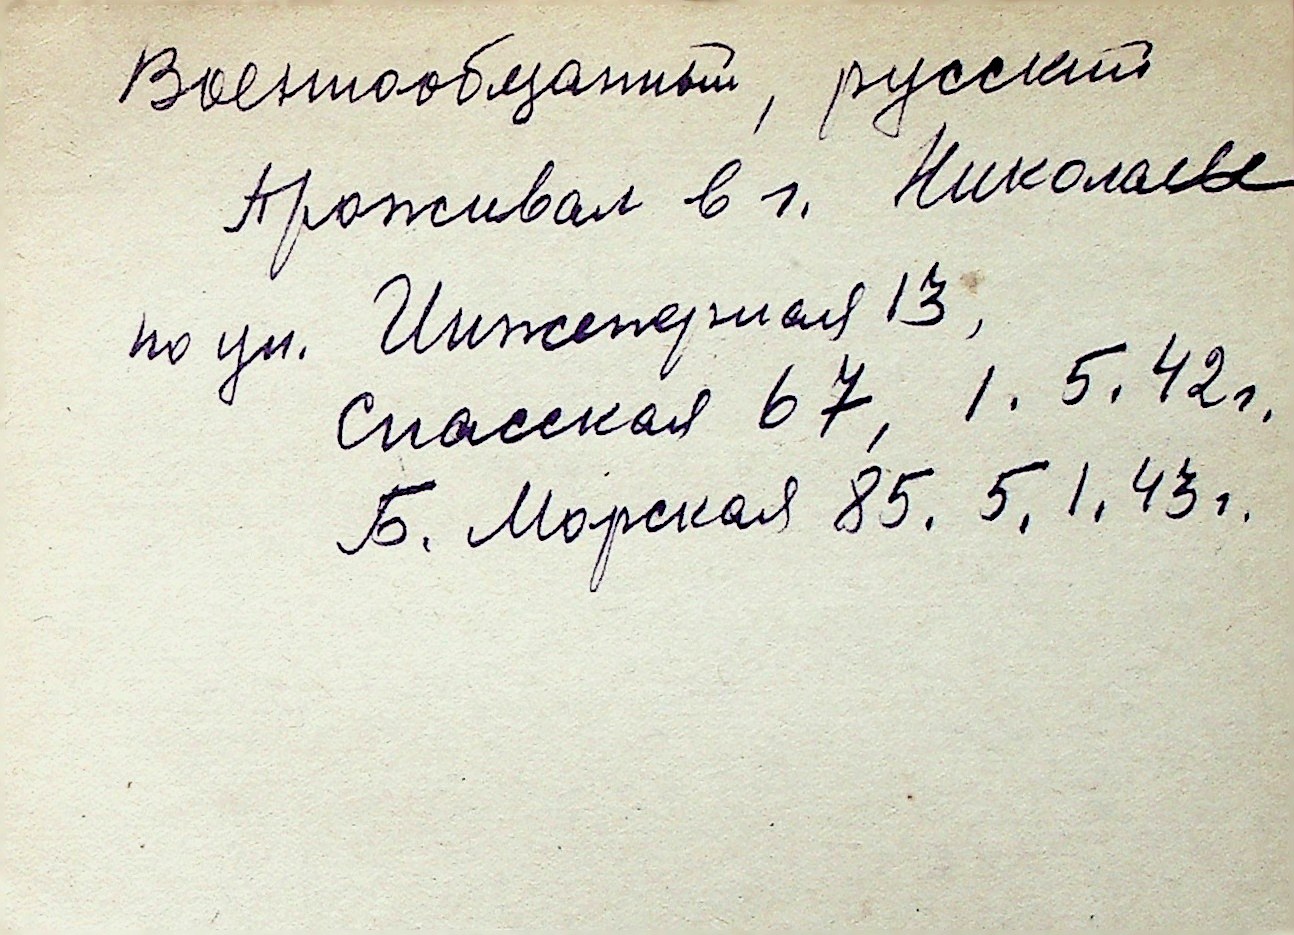 Военнообязанный, русский
Проживал в г. Николаеве
по ул. Инженерная 13,
Спасская 67, 1.5.42г.
Б. Морская 85. 5.1.43г.